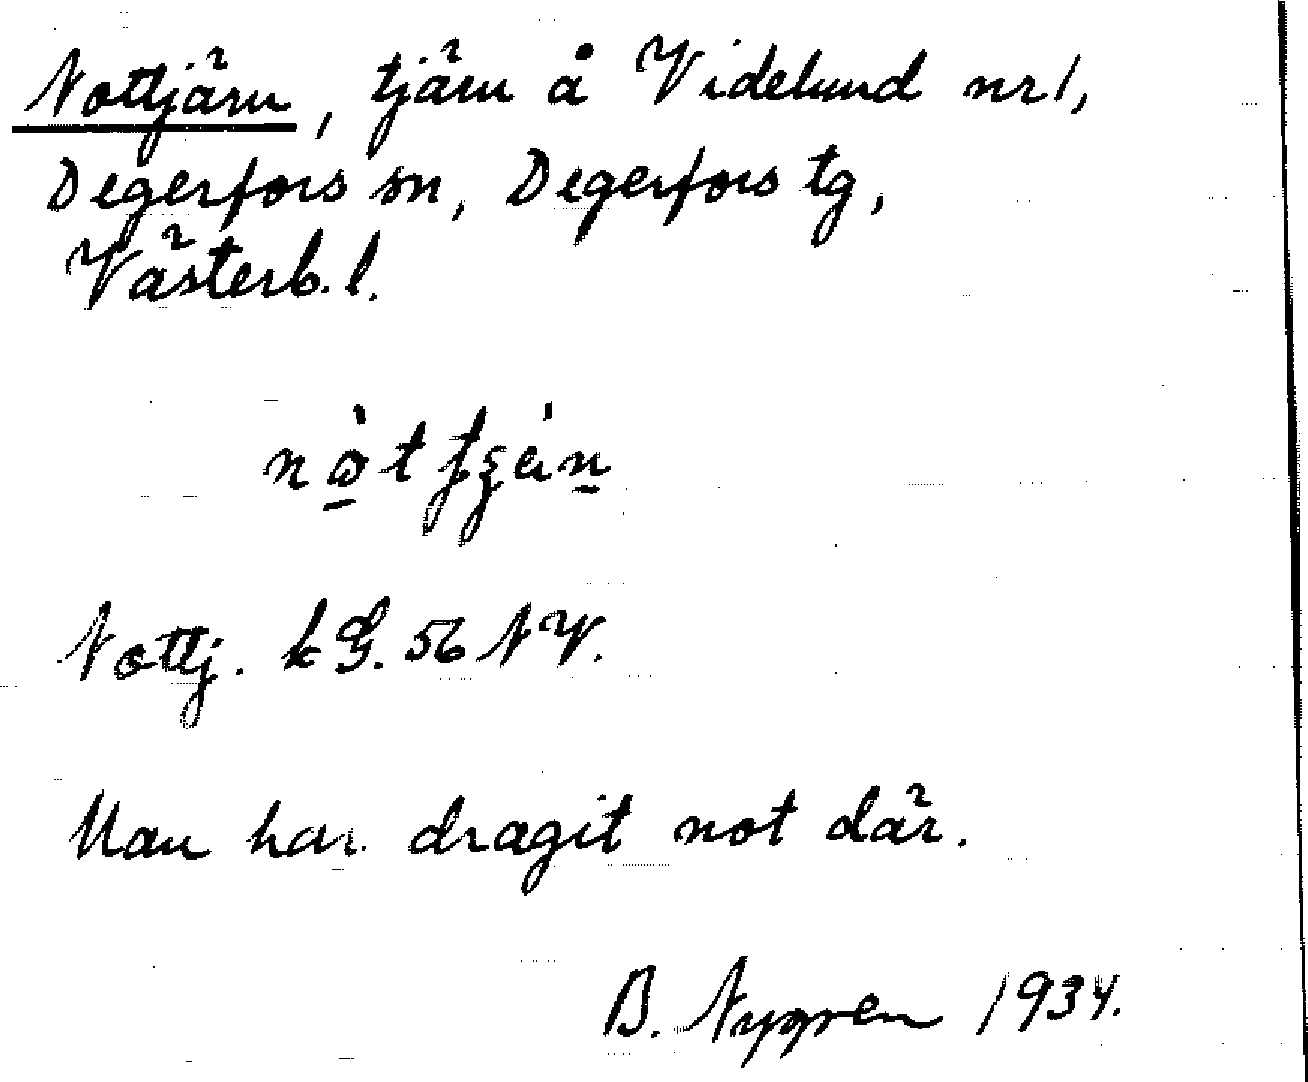 Nottjärn, tjärn å Videlund nr 1,
Degerfors sn, Degerfors tg,
Västerb. l.
Nottj. kG. 56 NV.
Man har dragit not där.
B. Nygren 1934.